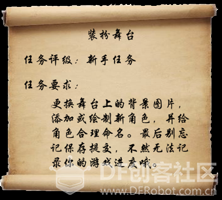 装扮舞台
任务评级：新手任务
任务要求：
更换舞台上的背景图片，
添加或绘制新角色，并给
角色合理命名。最后别忘
记保存提交，不然无法记
录你的游戏进度哦。
DF创客社区
www.DFRobot.com.cn